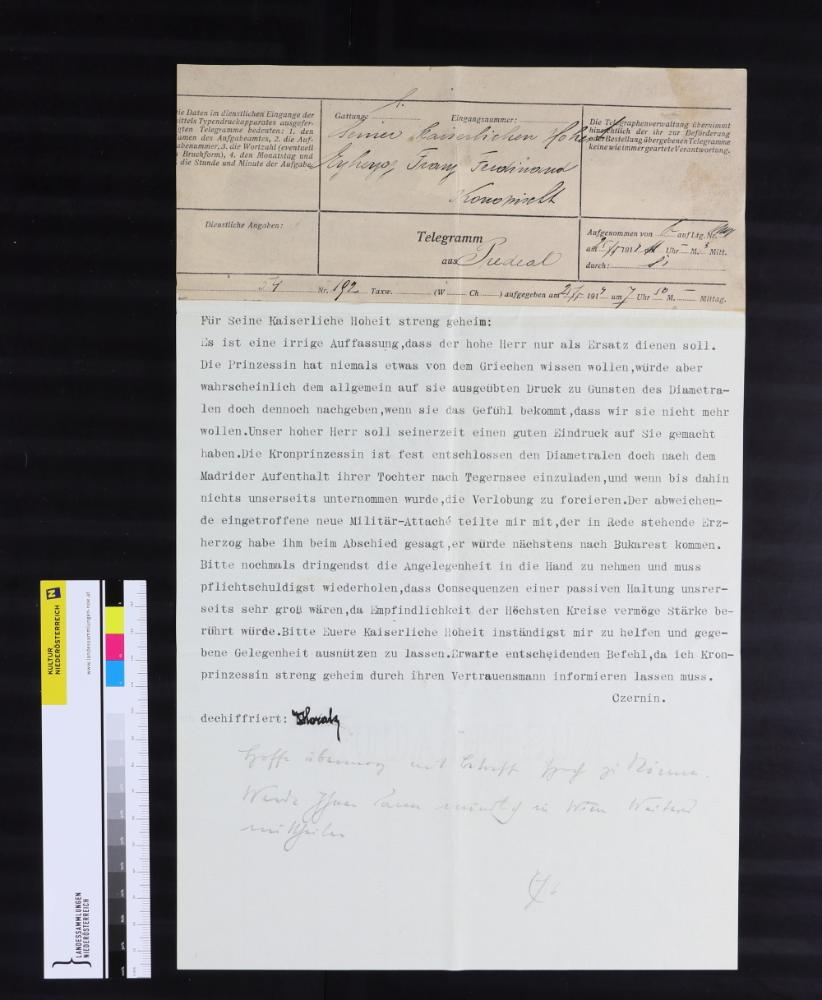 ie Daten im dienstlichen Eingange der
ittels Typendruckapparates ausgefer-
gten Telegramme bedeuten: 1. den
amen des Aufgabeamtes, 2. die Auf-
abenummer, 3. die Wortzahl (eventuell
Bruchform), 4. den Monatstag und
die Stunde und Minute der Aufgabe.
Gattung:
Eingangsnummer:
Seiner Kaiserlichen Hoheit
Erzherzog Franz Ferdinand
Konopischt
Die Telegraphenverwaltung übernimmt
hinsichtlich der ihr zur Beförderung
oder Bestellung übergebenen Telegramme
keine wie immer geartete Verantwortung.
Dienstliche Angaben:
Telegramm
aus Predeal
Aufgenommen von auf Ltg. Nr.
am 191 Uhr M. Mitt.
durch:
Nr. 192 Taxw. (W Ch ) aufgegeben am 191 um 7 Uhr 50 M. Mittag.
Für Seine Kaiserliche Hoheit streng geheim:
Es ist eine irrige Auffassung,dass der hohe Herr nur als Ersatz dienen soll.
Die Prinzessin hat niemals etwas von dem Griechen wissen wollen,würde aber
wahrscheinlich dem allgemein auf sie ausgeübten Druck zu Gunsten des Diametra-
len doch dennoch nachgeben,wenn sie das Gefühl bekommt,dass wir sie nicht mehr
wollen.Unser hoher Herr soll seinerzeit einen guten Eindruck auf Sie gemacht
haben.Die Kronprinzessin ist fest entschlossen den Diametralen doch nach dem
Madrider Aufenthalt ihrer Tochter nach Tegernsee einzuladen,und wenn bis dahin
nichts unserseits unternommen wurde,die Verlobung zu forcieren.Der abweichen-
de eingetroffene neue Militär-Attaché teilte mir mit,der in Rede stehende Erz-
herzog habe ihm beim Abschied gesagt,er würde nächstens nach Bukarest kommen.
Bitte nochmals dringendst die Angelegenheit in die Hand zu nehmen und muss
pflichtschuldigst wiederholen,dass Consequenzen einer passiven Haltung unsrer-
seits sehr groß wären,da Empfindlichkeit der Höchsten Kreise vermöge Stärke be-
rührt würde.Bitte Euere Kaiserliche Hoheit inständigst mir zu helfen und gege-
bene Gelegenheit ausnützen zu lassen.Erwarte entscheidenden Befehl,da ich Kron-
prinzessin streng geheim durch ihren Vertrauensmann informieren lassen muss.
Czernin.
dechiffriert:
Hoffe
Werde Ihnen dann mündlich in Wien Weiteres
mittheilen
KULTUR
NIEDERÖSTERREICH
www.landessammlungen-noe.at
LANDESSAMMLUNGEN
NIEDERÖSTERREICH